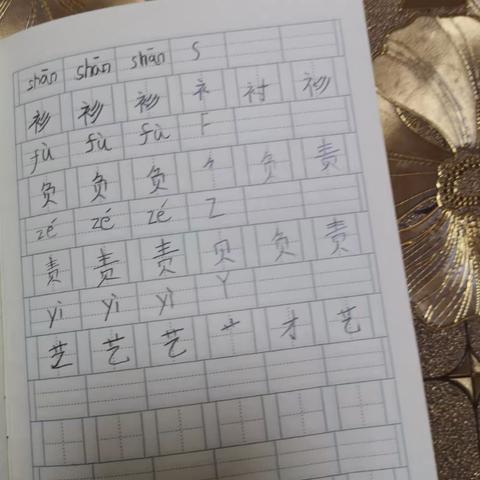 shān shān shān S
衫 衫 衫 衤 衬 衫
fù fù fù F
负 负 负 ⺈ 负 责
zé zé zé Z
责 责 责 贝 负 责
yì yì yì Y
艺 艺 艺 艹 才 艺